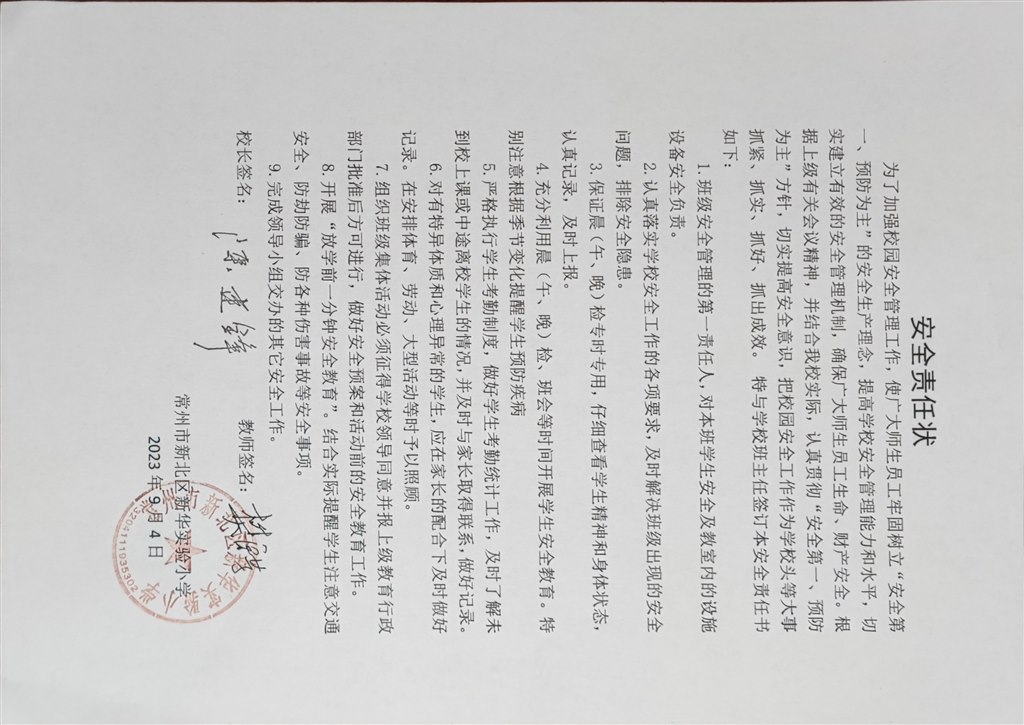 安全责任状
为了加强校园安全管理工作，使广大师生员工牢固树立“安全第
一、预防为主”的安全生产理念，提高学校安全管理能力和水平，切
实建立有效的安全管理机制，确保广大师生员工生命、财产安全。根
据上级有关会议精神，并结合我校实际，认真贯彻“安全第一、预防
为主”方针，切实提高安全意识，把校园安全工作作为学校头等大事
抓紧、抓实、抓好、抓出成效。 特与学校班主任签订本安全责任书
如下：
1. 班级安全管理的第一责任人，对本班学生安全及教室内的设施
设备安全负责。
2. 认真落实学校安全工作的各项要求，及时解决班级出现的安全
问题，排除安全隐患。
3. 保证晨（午、晚）检专时专用，仔细查看学生精神和身体状态，
认真记录，及时上报。
4. 充分利用晨（午、晚）检、班会等时间开展学生安全教育。特
别注意根据季节变化提醒学生预防疾病
5. 严格执行学生考勤制度，做好学生考勤统计工作，及时了解未
到校上课或中途离校学生的情况，并及时与家长取得联系，做好记录。
6. 对有特异体质和心理异常的学生，应在家长的配合下及时做好
记录。在安排体育、劳动、大型活动等时予以照顾。
7. 组织班级集体活动必须征得学校领导同意并报上级教育行政
部门批准后方可进行，做好安全预案和活动前的安全教育工作。
8. 开展“放学前一分钟安全教育”。结合实际提醒学生注意交通
安全、防劫防骗、防各种伤害事故等安全事项。
9. 完成领导小组交办的其它安全工作。
校长签名： 教师签名：
常州市新北区新华实验小学
2023 年 9 月 4 日